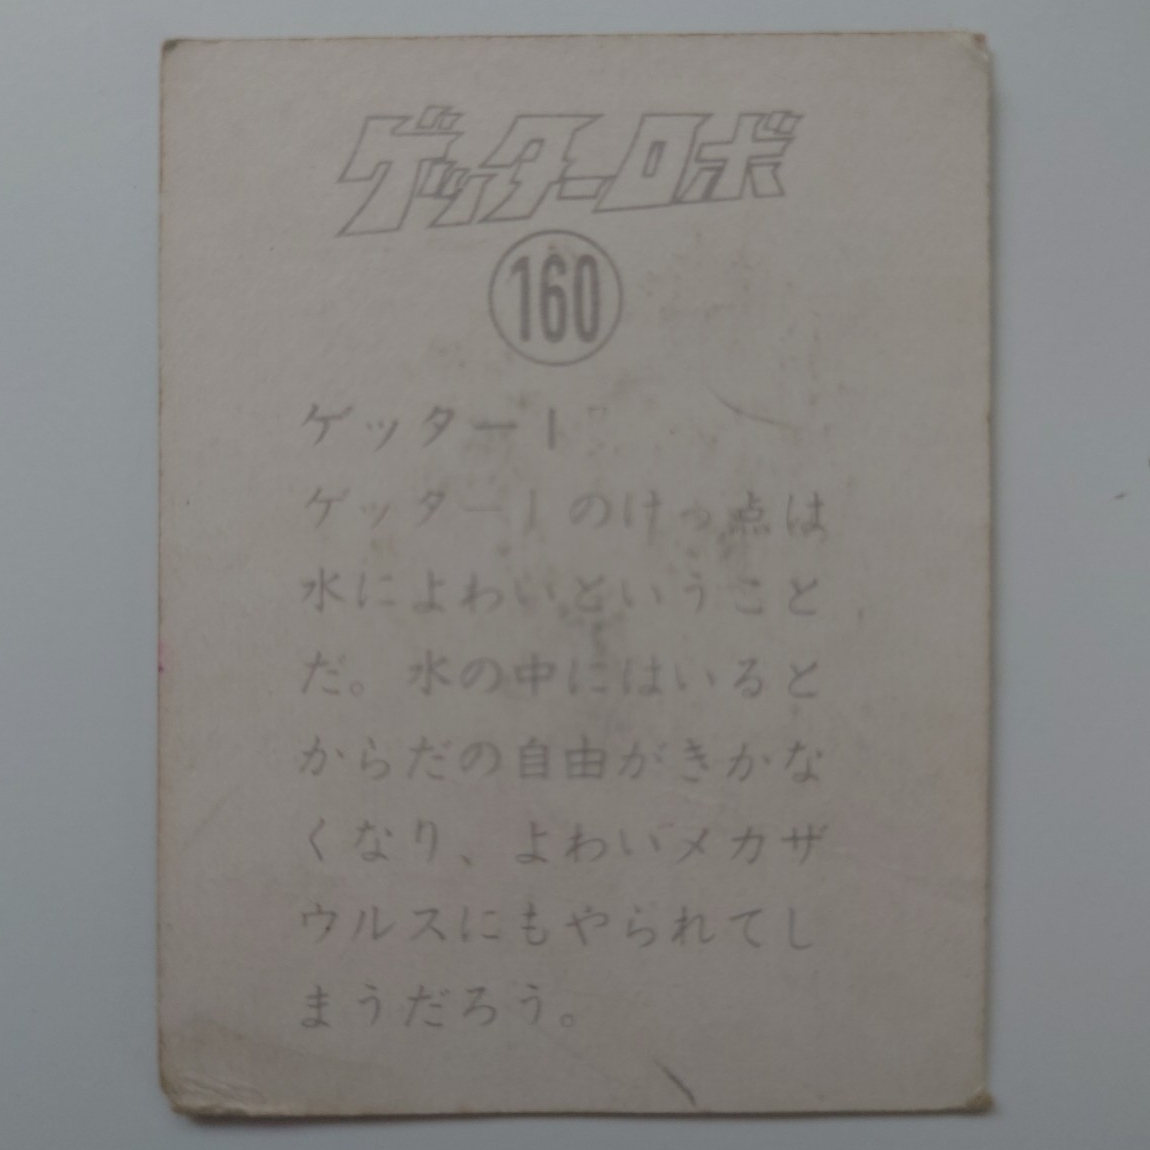 ゲッターロボ
160
ゲッター1
ゲッター1のけっ点は
水によわいということ
だ。水の中にはいると
からだの自由がきかな
くなり、よわいメカザ
ウルスにもやられてし
まうだろう。